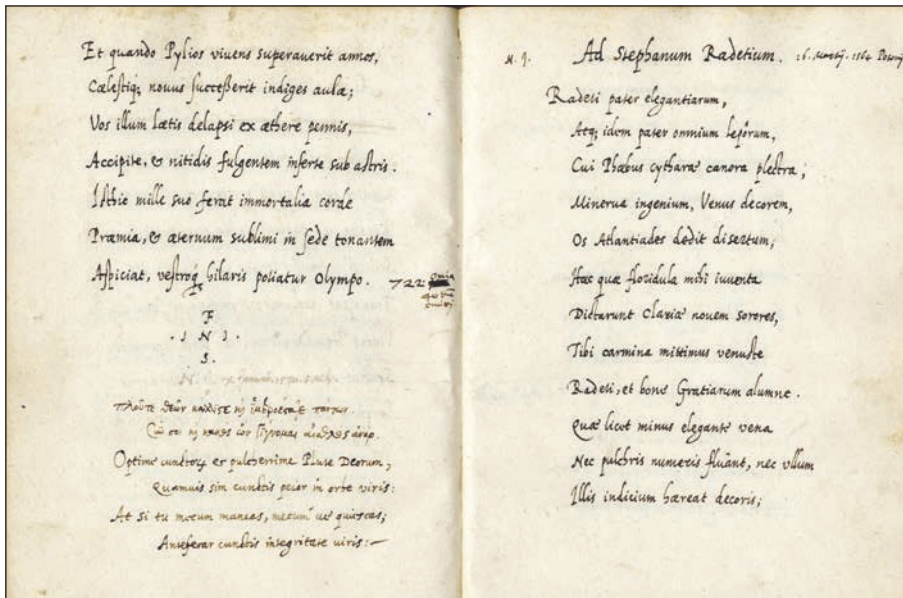 Et quando Pylios viuens superauerit annos,
Cœlestiq; nouus successerit indiges aulæ;
Vos illum lætis delapsi ex æthere pennis,
Accipite, & nitidis fulgentem inferte sub astris.
Isthic mille suo ferat immortalia corde
Præmia, & æternum sublimi in sede tonantem
Aspiciat, vestroq; hilaris potiatur Olympo. 722
F
. I N I .
S.
Optime cunctorum et pulcherrime Plute Deorum,
Quamuis sim cunctis peior in orbe viris:
At si tu mecum maneas, mecum ue quiescas;
Anteferar cunctis integritate viris:
Ad Stephanum Radetium. 16. 1564
Radeti pater elegantiarum,
Atq; idem pater omnium lepôrum,
Cui Phœbus cytharæ canora plectra;
Minerua ingenium, Venus decorem,
Os Atlantiades dedit disertum;
Hæc quæ floridula mihi iuuenta
Dictarunt Clariæ nouem sorores,
Tibi carmina mittimus venuste
Radeti, et bone Gratiarum alumne.
Quæ licet minus elegante vena
Nec pulchris numeris fluant, nec vllum
Illis indicium hæreat decoris;